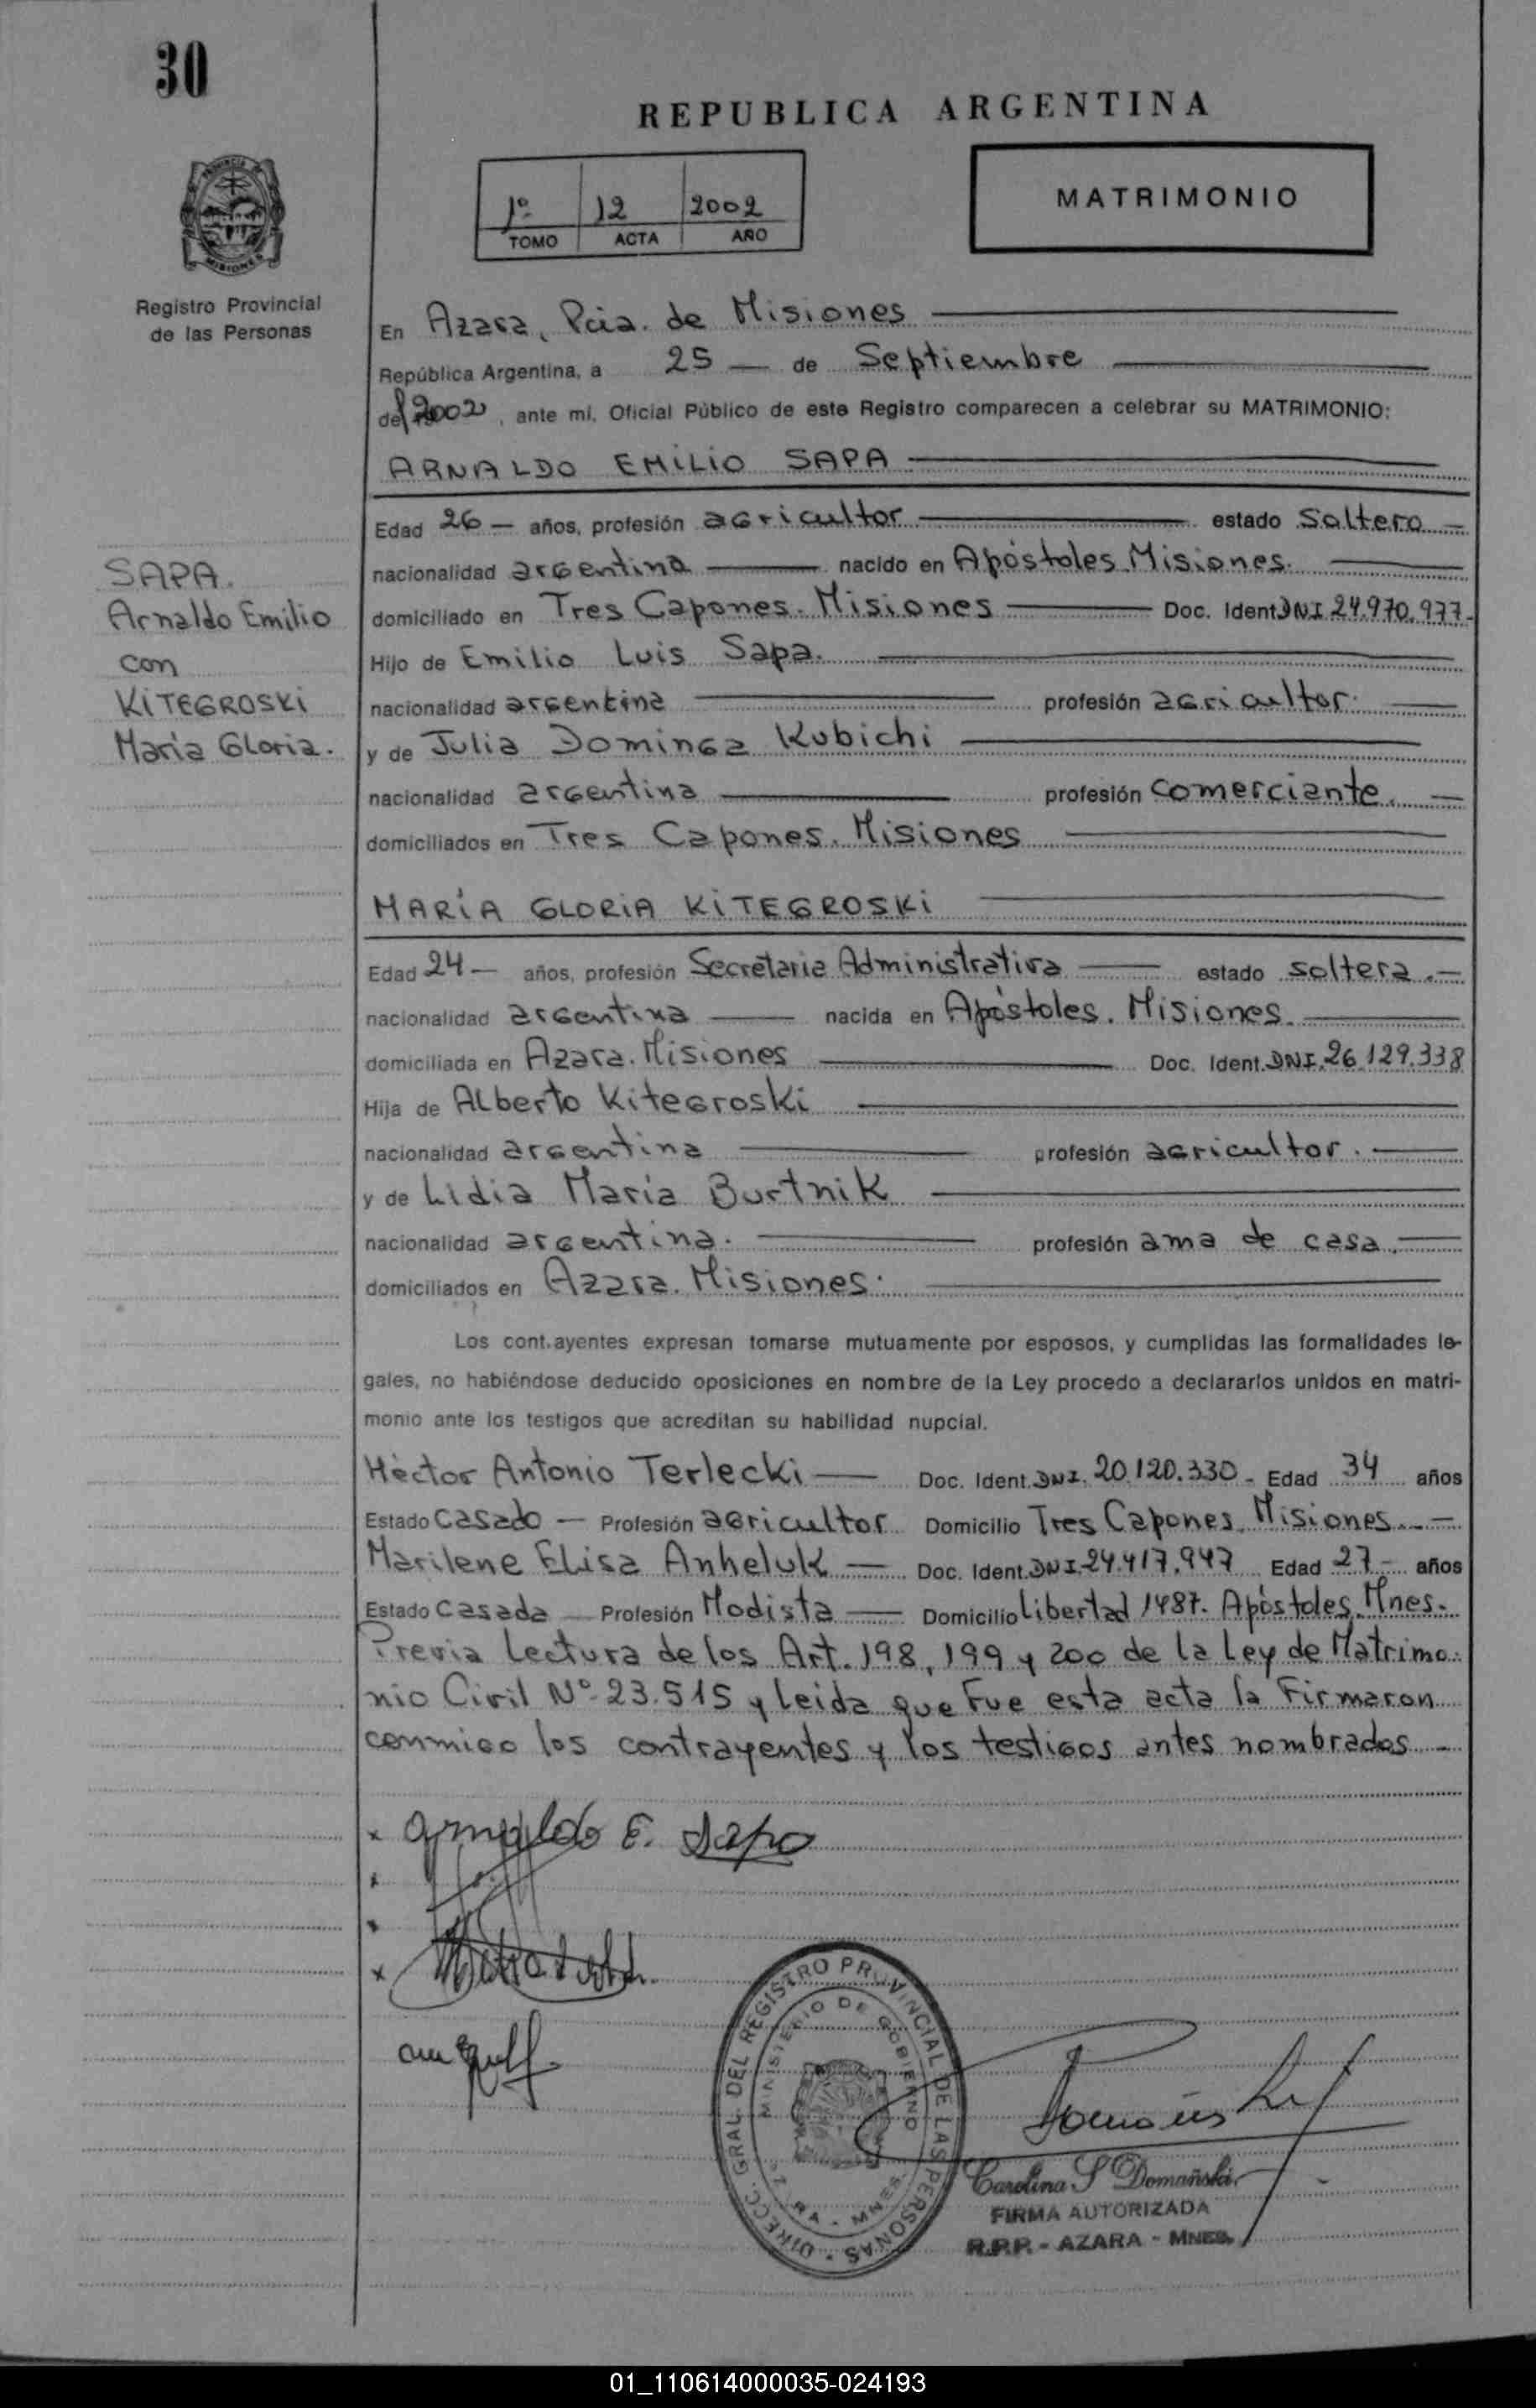 30
REPUBLICA ARGENTINA
1º 12 2002
TOMO ACTA AÑO
MATRIMONIO
PROVINCIA
MISIONES
Registro Provincial
de las Personas
En Azara, Pcia. de Misiones
República Argentina, a 25 — de Septiembre
del 2002, ante mí, Oficial Público de este Registro comparecen a celebrar su MATRIMONIO:
ARNALDO EMILIO SAPA
Edad 26 — años, profesión agricultor estado Soltero —
nacionalidad argentina nacido en Apóstoles. Misiones.
domiciliado en Tres Capones. Misiones Doc. Ident. DNI 24.970.977-
Hijo de Emilio Luis Sapa.
nacionalidad argentina profesión agricultor.
y de Julia Dominga Kubichi
nacionalidad argentina profesión comerciante. —
domiciliados en Tres Capones. Misiones
SAPA.
Arnaldo Emilio
con
KITEGROSKI
María Gloria.
MARÍA GLORIA KITEGROSKI
Edad 24 — años, profesión Secretaria Administrativa estado soltera.—
nacionalidad argentina nacida en Apóstoles. Misiones.
domiciliada en Azara. Misiones Doc. Ident. DNI. 26.129.338
Hija de Alberto Kitegroski
nacionalidad argentina profesión agricultor.
y de Lidia María Burtnik
nacionalidad argentina. profesión ama de casa.
domiciliados en Azara. Misiones.
Los cont.ayentes expresan tomarse mutuamente por esposos, y cumplidas las formalidades le-
gales, no habiéndose deducido oposiciones en nombre de la Ley procedo a declararlos unidos en matri-
monio ante los testigos que acreditan su habilidad nupcial.
Hèctor Antonio Terlecki — Doc. Ident. DNI. 20.120.330 - Edad 34 años
Estado Casado — Profesión agricultor Domicilio Tres Capones. Misiones —
Marilene Elisa Anheluk — Doc. Ident. DNI. 24.417.947 Edad 27 - años
Estado Casada Profesión Modista — Domicilio Libertad 1487. Apóstoles. Mnes.
Previa Lectura de los Art. 198, 199 y 200 de la Ley de Matrimo-
nio Civil Nº 23.515 y leida que fue esta acta la firmaron
conmigo los contrayentes y los testigos antes nombrados —
x Arnaldo E. Sapa
x
DIRECC. GRAL. DEL REGISTRO PROVINCIAL DE LAS PERSONAS
MINISTERIO DE GOBIERNO
MNES
Carolina S Domañski
FIRMA AUTORIZADA
R.P.P. - AZARA - MNES.
01_110614000035-024193